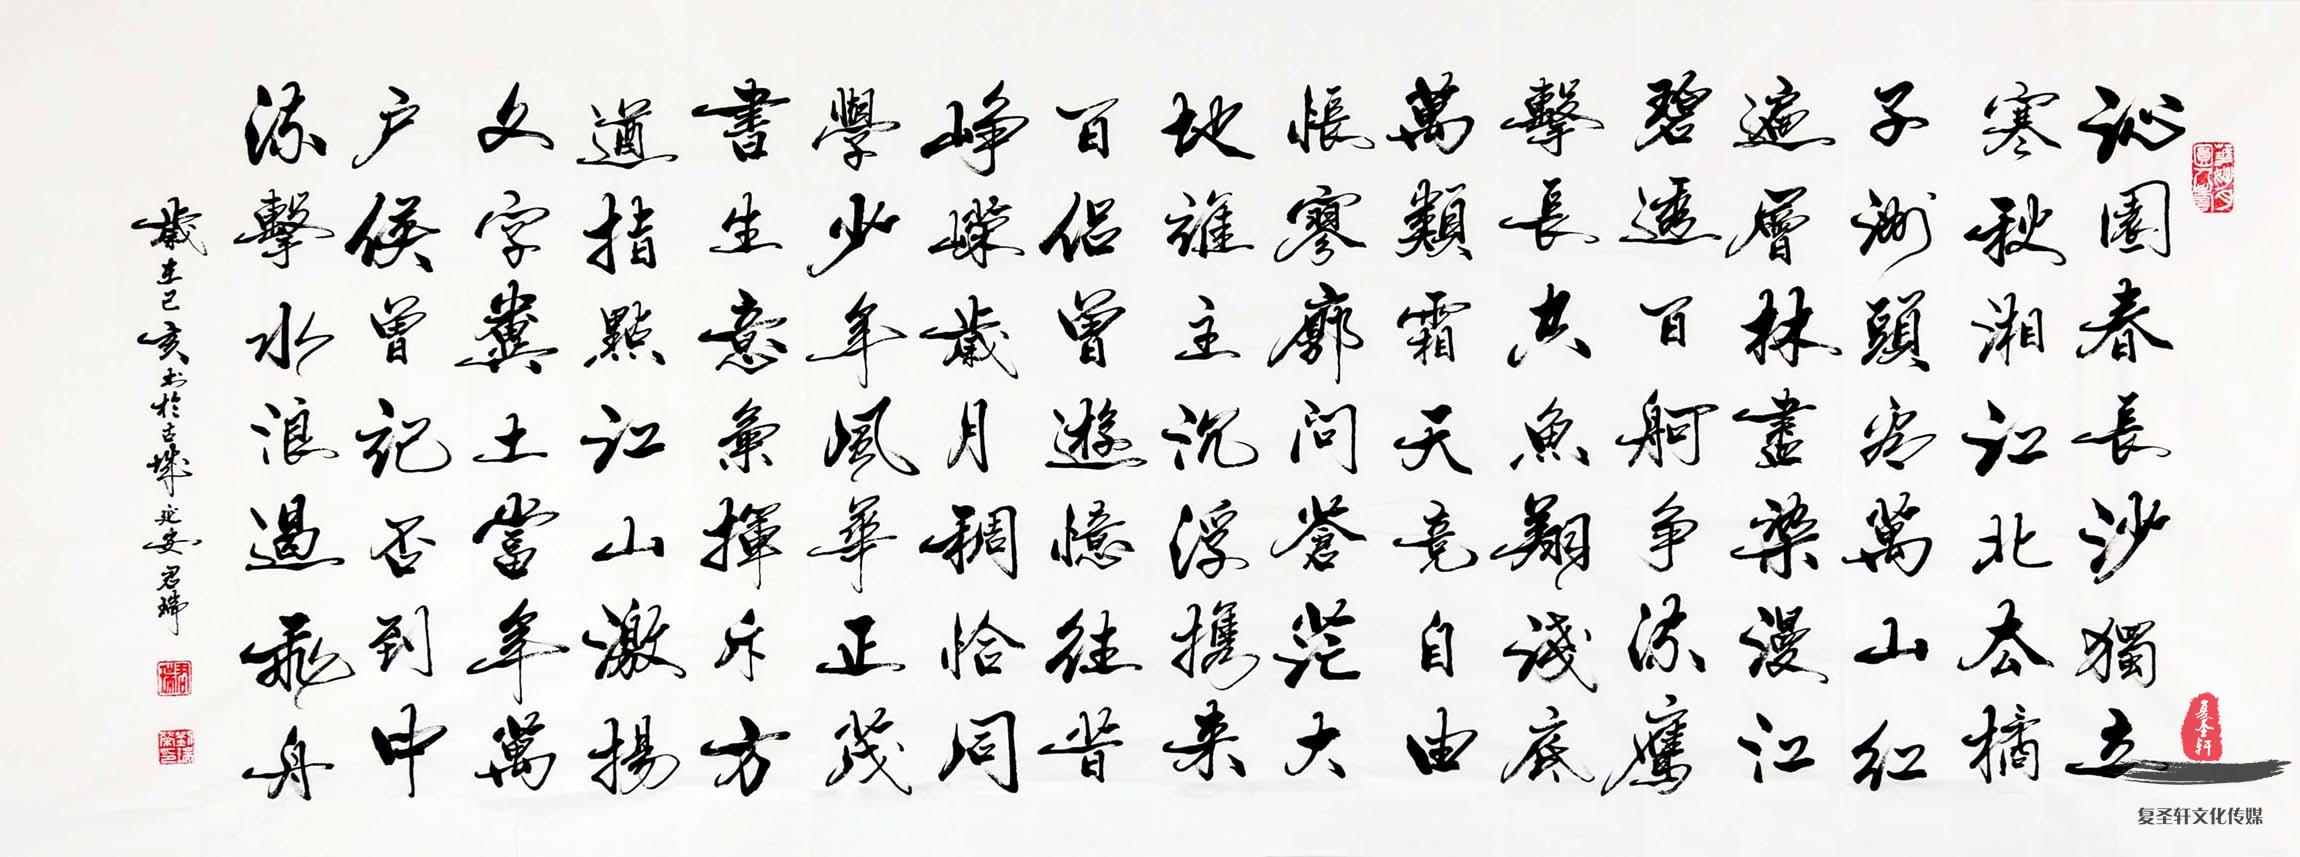 沁園春長沙獨立
寒秋湘江北去橘
子洲頭看萬山紅
遍層林盡染漫江
碧透百舸争流鷹
擊長空魚翔淺底
萬類霜天竞自由
悵寥廓問蒼茫大
地誰主沉浮携来
百侣曾遊憶往昔
崢嶸歲月稠恰同
學少年風華正茂
書生意氣揮斥方
遒指點江山激揚
文字糞土當年萬
户侯曾記否到中
流擊水浪遏飛舟
歲在己亥书於古城延安君瑞
复圣轩
复圣轩文化传媒